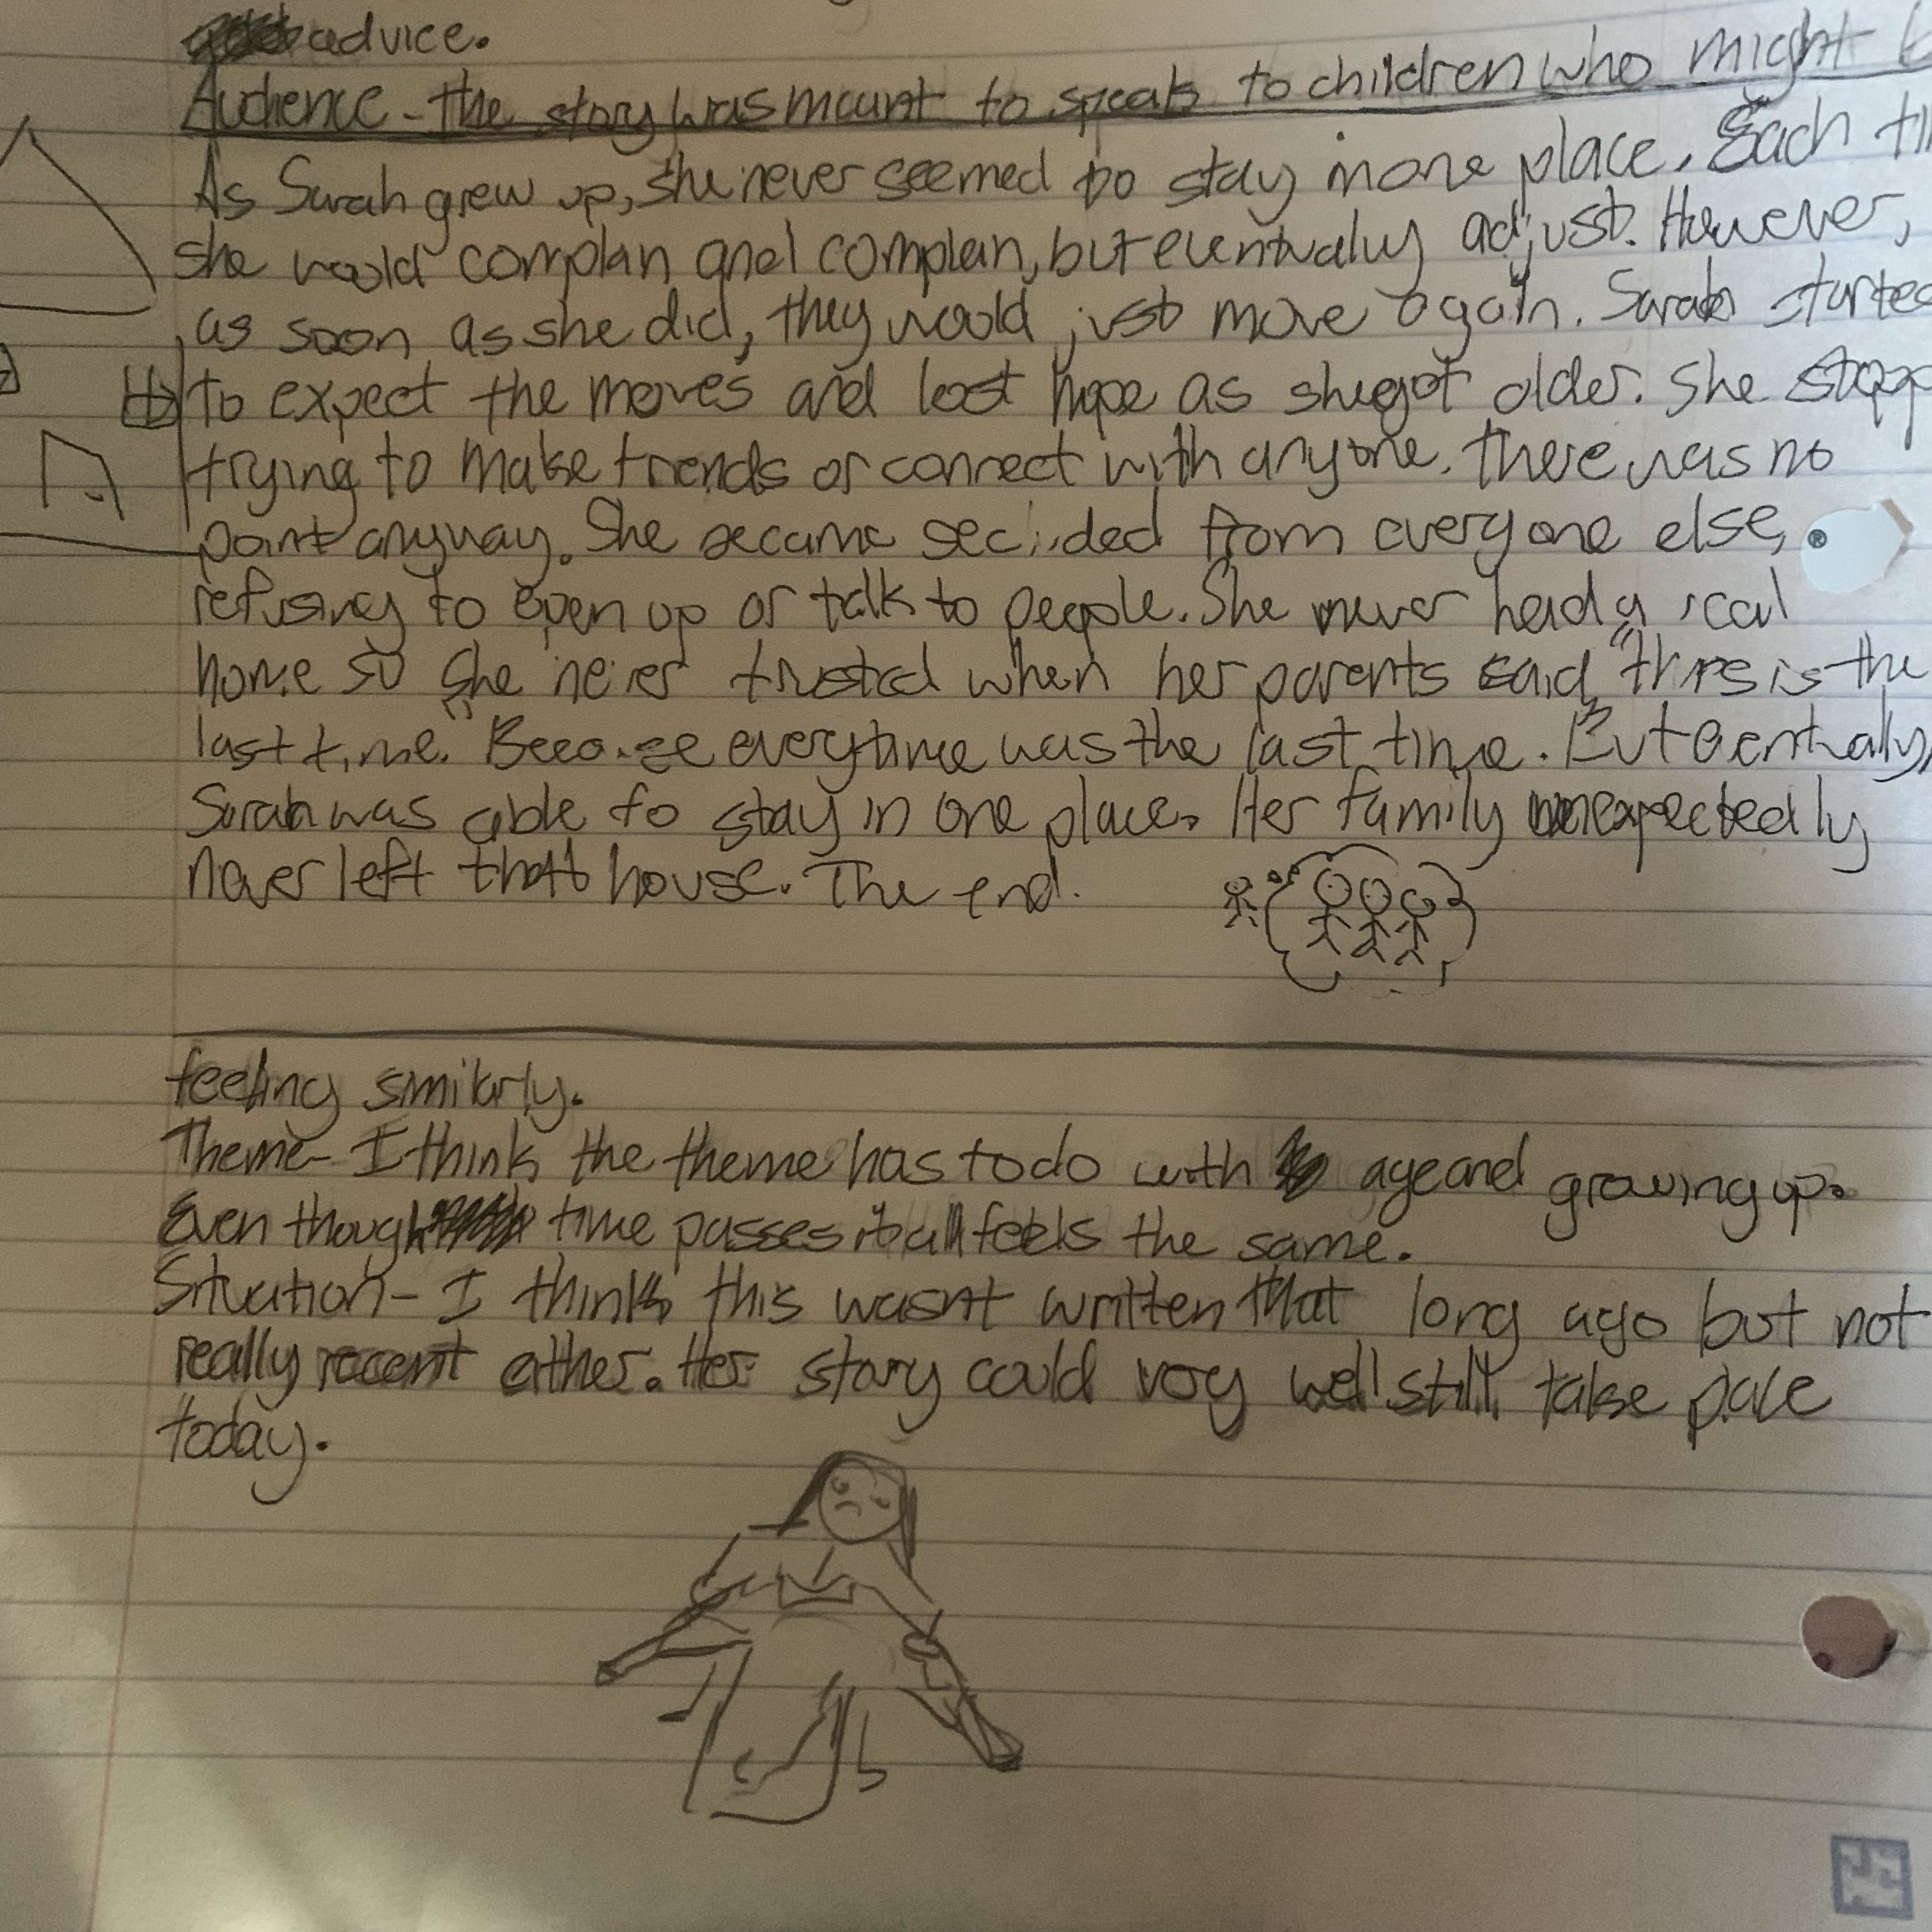 advice.
Audience - the story was meant to speak to children who might
As Sarah grew up, she never seemed to stay in one place. Each
she would complan and complain, but eventually adjust. However,
as soon as she did, they would just move again. Sarah started
to expect the moves and lost hope as she got older. She
trying to make friends or connect with anyone. There was no
point anyway. She became secluded from everyone else,
refusing to open up or talk to people. She never had a real
home so she never trusted when her parents said, "this is the
last time." Because everytime was the last time. But eventually,
Sarah was able to stay in one place. Her family unexpectedly
never left that house. The end.
feeling similarly.
Theme - I think the theme has to do with age and growing up.
Even though time passes it all feels the same.
Situation - I think this wasnt written that long ago but not
really recent either. Her story could very well still take place
today.
®